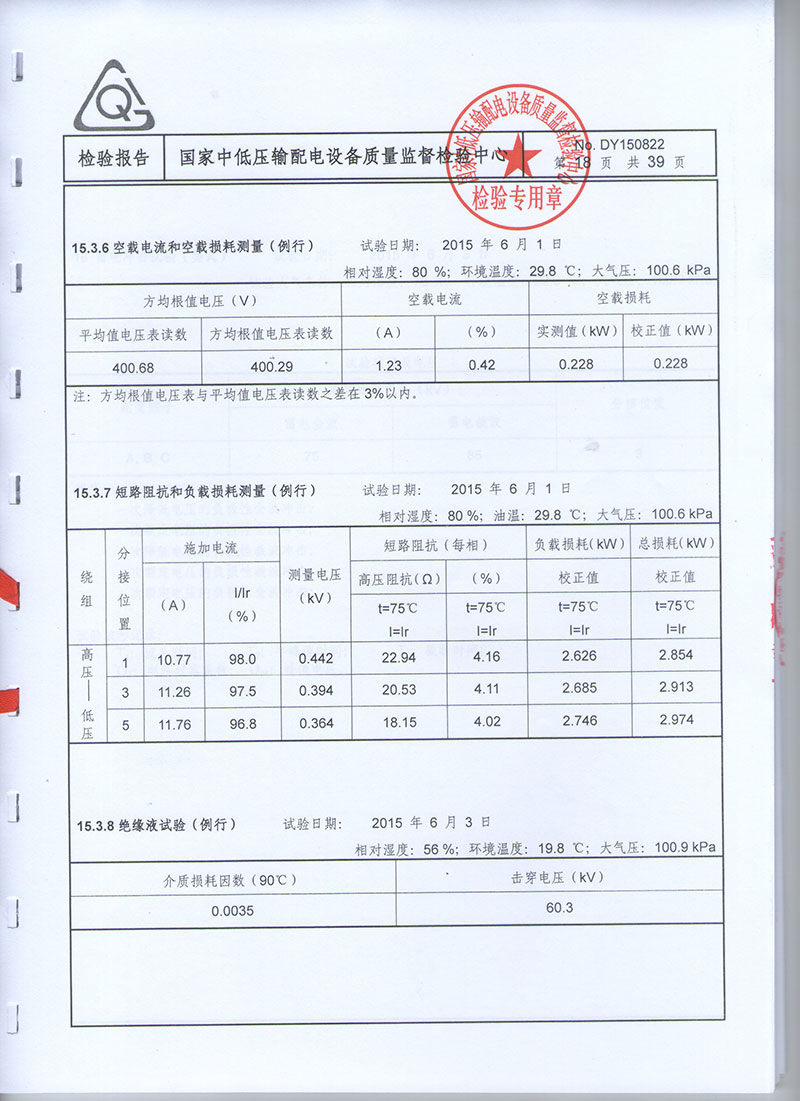 QG
国家中低压输配电设备质量监督检验中心
检验专用章
检验报告 国家中低压输配电设备质量监督检验中心 No. DY150822
第 18 页 共 39 页
15.3.6 空载电流和空载损耗测量（例行） 试验日期： 2015 年 6 月 1 日
相对湿度：80 %；环境温度：29.8 ℃；大气压：100.6 kPa
方均根值电压（V） 空载电流 空载损耗
平均值电压表读数 方均根值电压表读数 （A） （%） 实测值（kW） 校正值（kW）
400.68 400.29 1.23 0.42 0.228 0.228
注：方均根值电压表与平均值电压表读数之差在 3%以内。
15.3.7 短路阻抗和负载损耗测量（例行） 试验日期： 2015 年 6 月 1 日
相对湿度：80 %；油温：29.8 ℃；大气压：100.6 kPa
绕组 分接位置 施加电流 测量电压（kV） 短路阻抗（每相） 负载损耗（kW） 总损耗（kW）
（A） I/Ir（%） 高压阻抗（Ω） （%） 校正值 校正值
t=75℃ t=75℃ t=75℃ t=75℃
I=Ir I=Ir I=Ir I=Ir
高压——低压 1 10.77 98.0 0.442 22.94 4.16 2.626 2.854
3 11.26 97.5 0.394 20.53 4.11 2.685 2.913
5 11.76 96.8 0.364 18.15 4.02 2.746 2.974
15.3.8 绝缘液试验（例行） 试验日期： 2015 年 6 月 3 日
相对湿度：56 %；环境温度：19.8 ℃；大气压：100.9 kPa
介质损耗因数（90℃） 击穿电压（kV）
0.0035 60.3